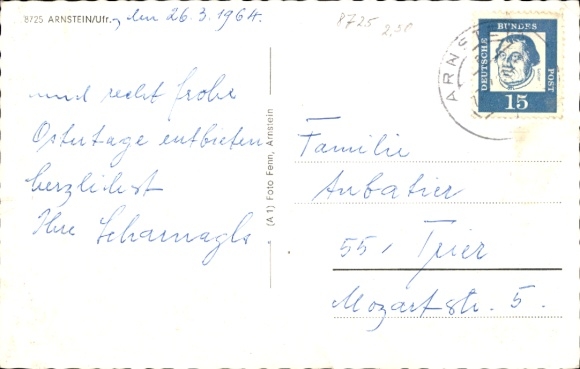 8725 ARNSTEIN/Ufr., den 26.3.1964.
8725 2,50
und recht frohe
Ostertage entbieten
herzlichst
Ihre Scharnagls
(A 1) Foto Fenn, Arnstein
DEUTSCHE BUNDES POST
15
ARNST
Familie
Aubatier
55, Trier
Mozartstr. 5.